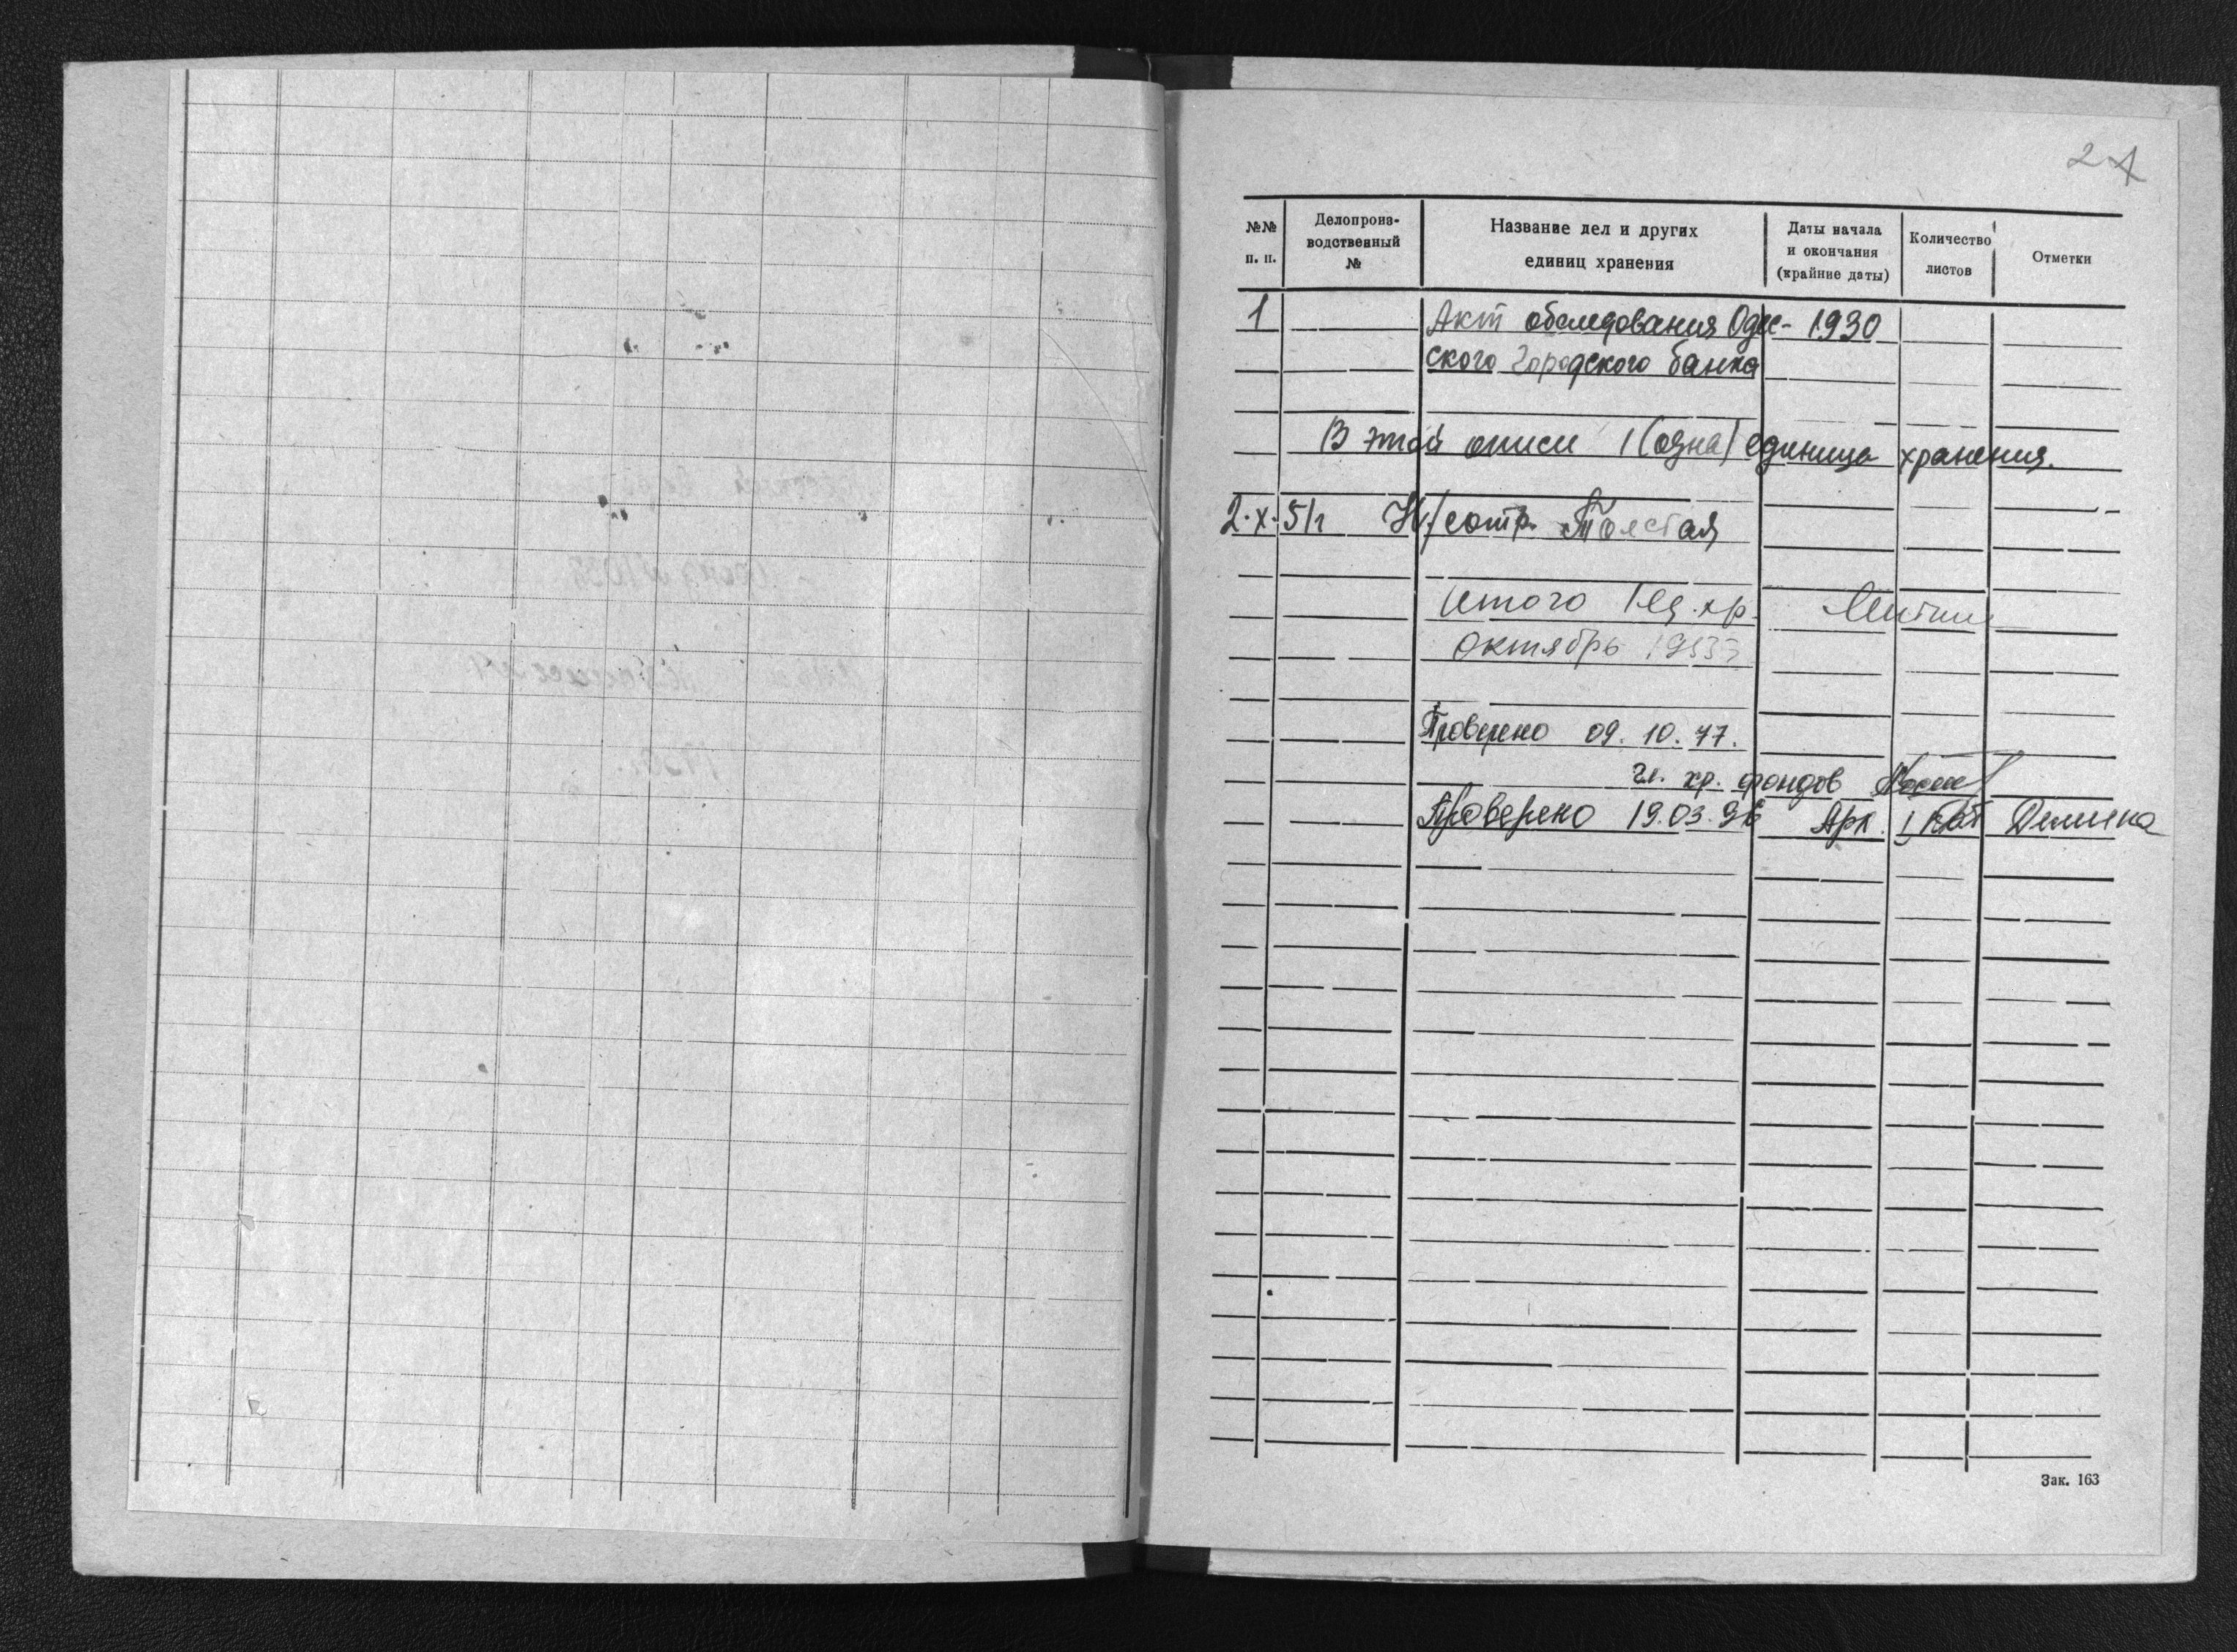 2
№№ п. п.
Делопроиз-
водственный
№
Название дел и других
единиц хранения
Даты начала
и окончания
(крайние даты)
Количество
листов
Отметки
1 Акт обследования Одес- 1930
ского городского банка
В этой описи 1 (одна) единица хранения.
2.X.51г Н/сотр. Толстая
Итого 1 ед. хр.
Октябрь 195
Проверено 09.10.77.
гл. хр. фондов
Проверено 19.03.96 Арх. I кат Демина
Зак. 163